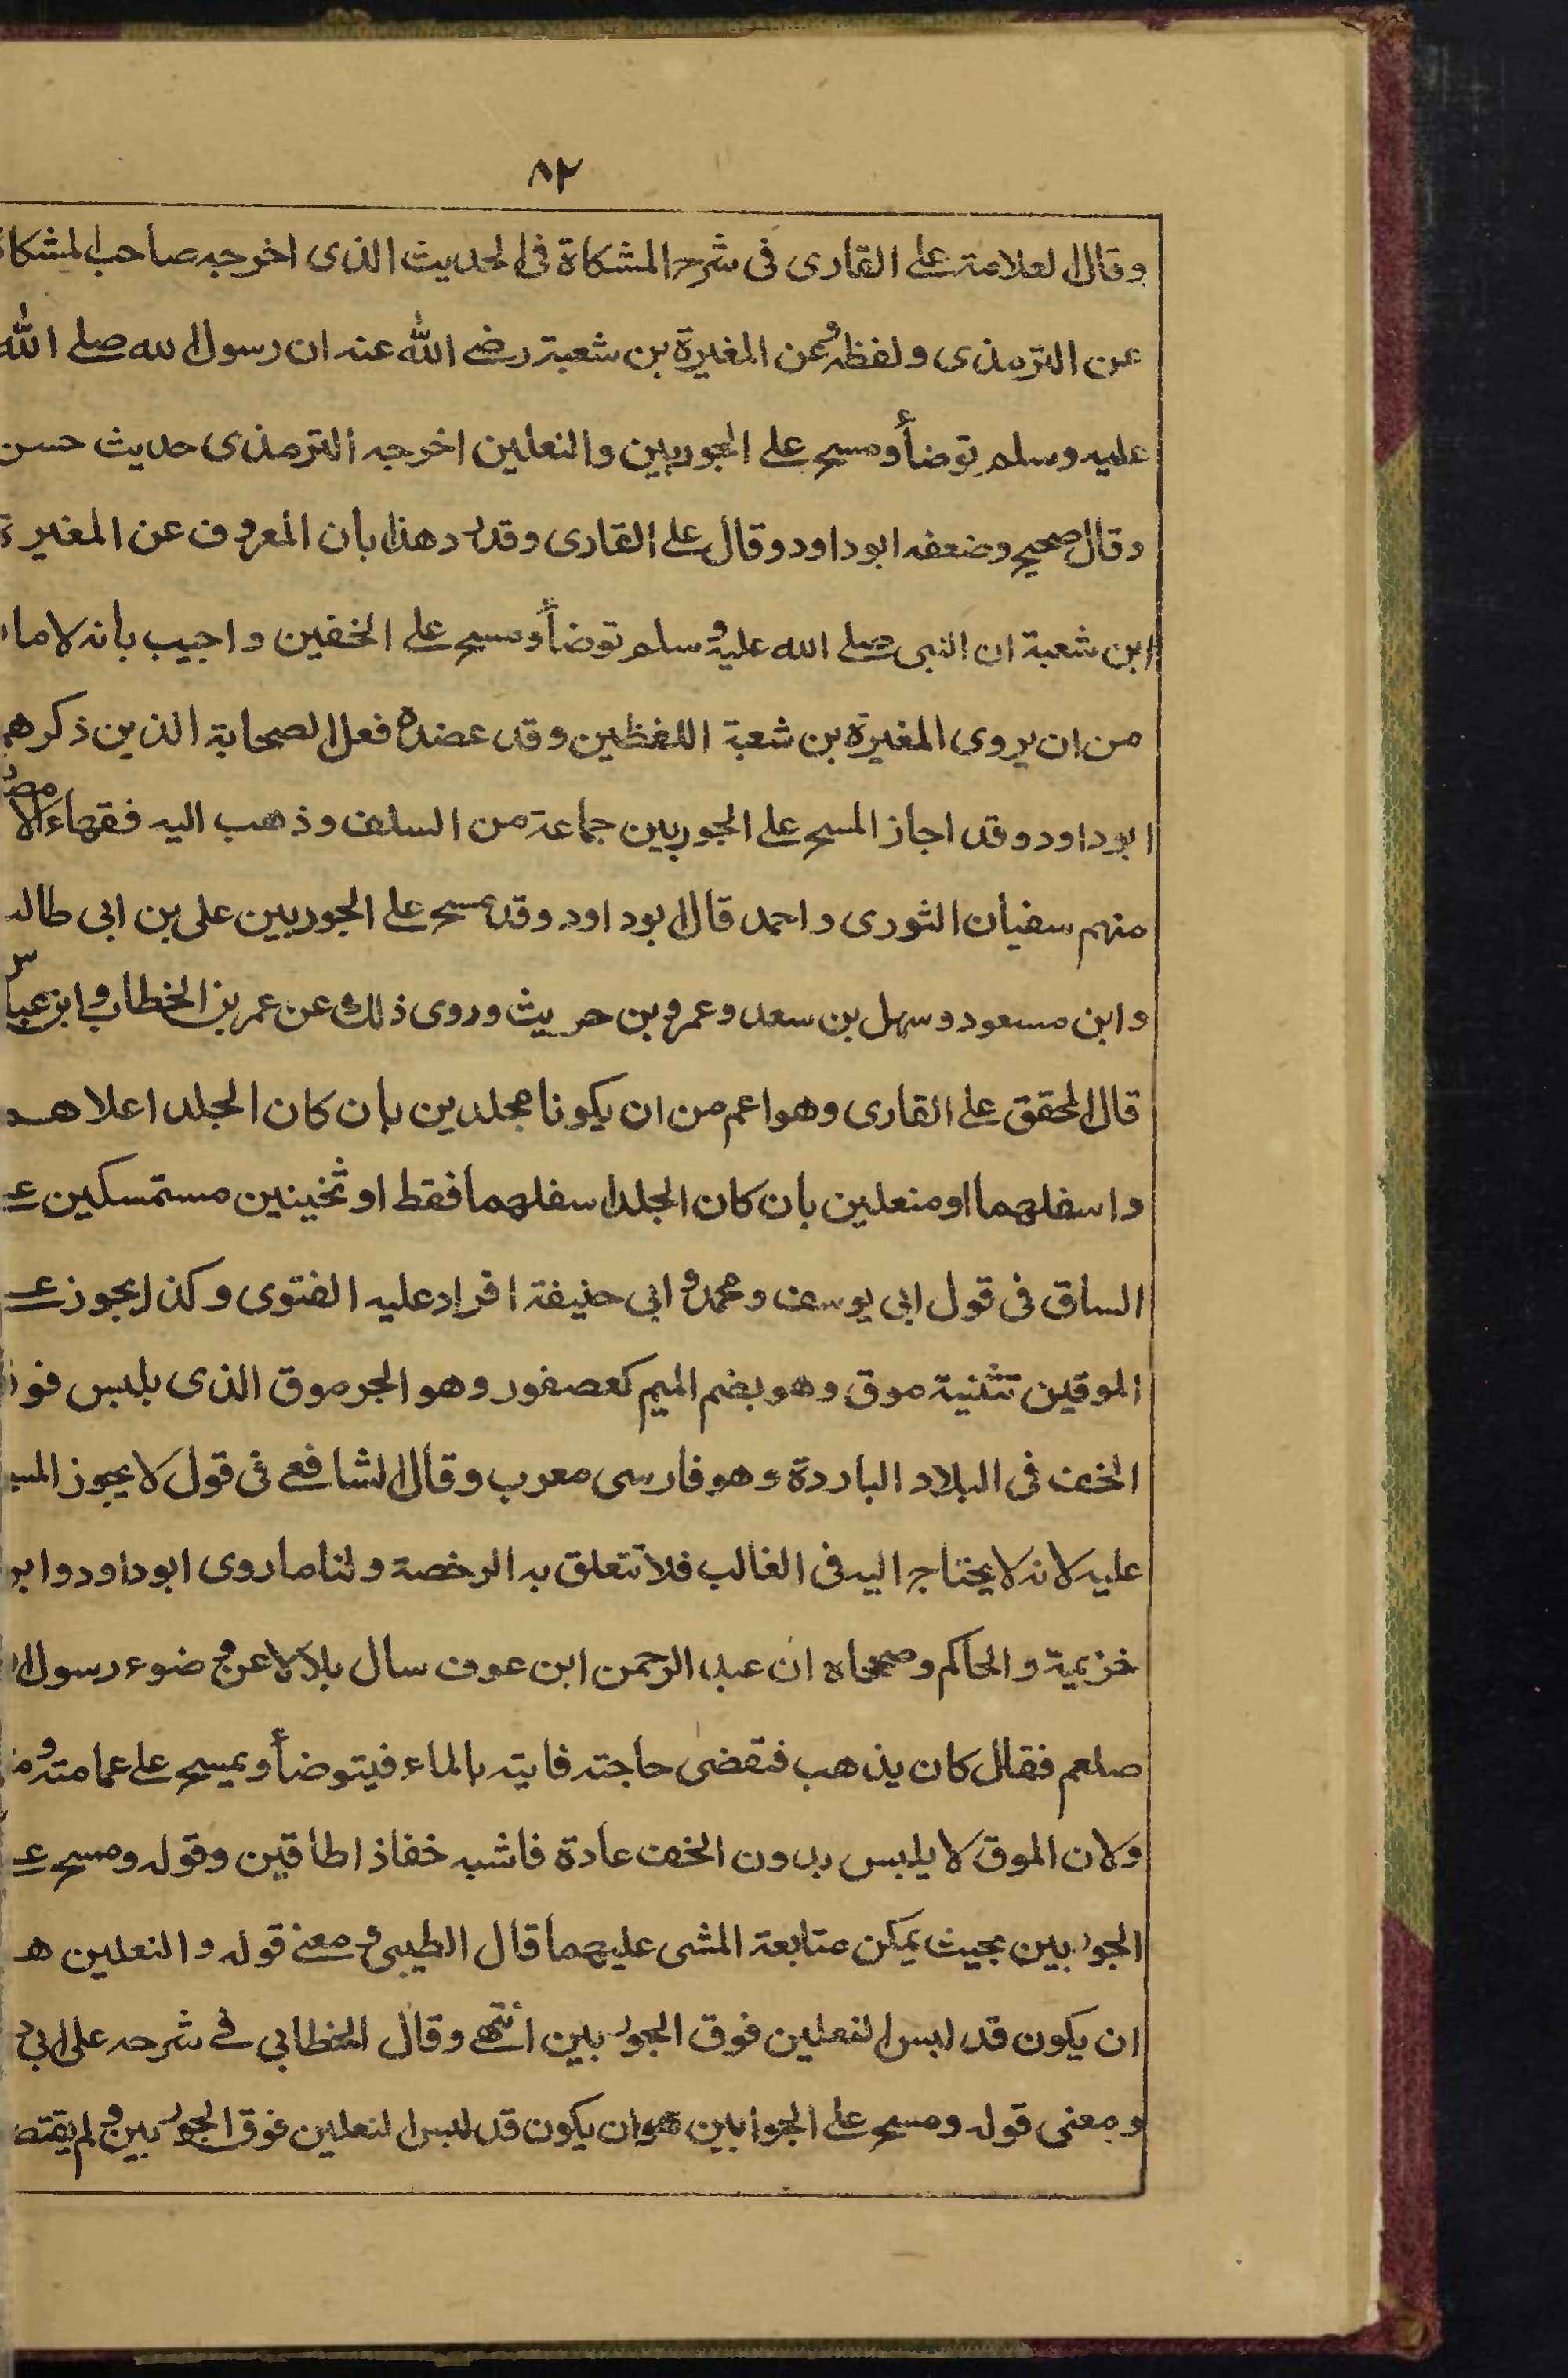 ٨٢
وقال العلامة على القارى فى شرح المشكاة فى الحديث الذى اخرجه صاحب المشكاة
عن الترمذى ولفظه وعن المغيرة بن شعبة رضى الله عنه ان رسول الله صلى الله
عليه وسلم توضأ ومسح على الجوربين والنعلين اخرجه الترمذى حديث حسن
وقال صحيح وضعفه ابو داود وقال على القارى وقد رد هذا بان المعروف عن المغيرة
ابن شعبة ان النبى صلى الله عليه وسلم توضأ ومسح على الخفين واجيب بانه لا ما
من ان يروى المغيرة بن شعبة اللفظين وقد عضده فعل الصحابة الذين ذكرهم
ابو داود وقد اجاز المسح على الجوربين جماعة من السلف وذهب اليه فقهاء الامصار
منهم سفيان الثورى واحمد قال ابو داود وقد مسح على الجوربين على بن ابى طالب
وابن مسعود وسهل بن سعد وعمرو بن حريث وروى ذلك عن عمر بن الخطاب وابن عباس
قال المحقق على القارى وهو اعم من ان يكونا مجلدين بان كان الجلد اعلاهـ
واسفلهما او منعلين بان كان الجلد اسفلهما فقط او ثخينين مستمسكين عـ
الساق فى قول ابى يوسف ومحمد وابى حنيفة اقراد عليه الفتوى وكذا يجوز عـ
الموقين تثنية موق وهو بضم الميم كعصفور وهو الجرموق الذى يلبس فوق
الخف فى البلاد الباردة وهو فارسى معرب وقال الشافعى فى قول لا يجوز المسح
عليه لانه لا يحتاج اليه فى الغالب فلا تتعلق به الرخصة ولنا ما روى ابو داود وابن
خزيمة والحاكم وصححاه ان عبد الرحمن ابن عوف سال بلالا عن وضوء رسول ا
صلعم فقال كان يذهب فتقضى حاجته فايته بالماء فيتوضأ ويمسح على عمامته و
ولان الموق لا يلبس بدون الخف عادة فاشبه خفاذا طاقين وقوله ومسح عـ
الجوربين بحيث يمكن متابعة المشى عليهما قال الطيبى ومعنى قوله والنعلين هـ
ان يكون قد لبس النعلين فوق الجوربين انتهى وقال الخطابى فى شرحه على ابى د
ومعنى قوله ومسح على الجوابين هو ان يكون قد لبس النعلين فوق الجوربين ولم يقتصـ